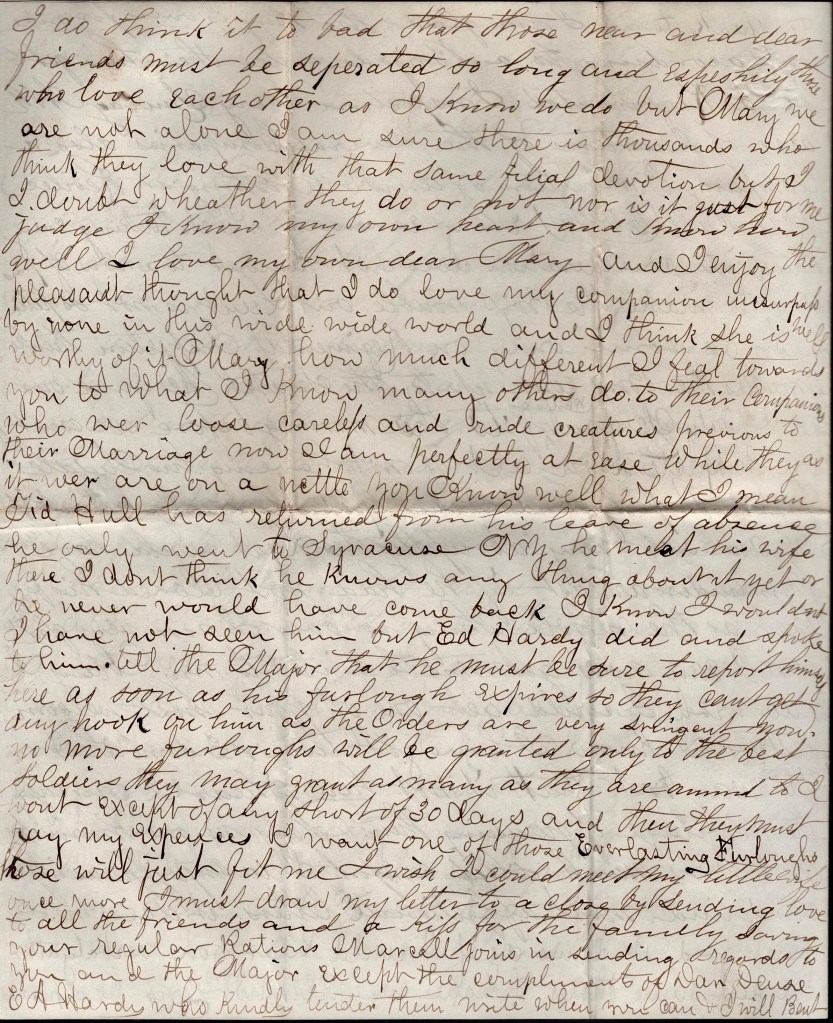 I do think it to bad that those near and dear
friends must be seperated so long and Espeshily those
who love Each other as I Know we do but Mary we
are not alone I am sure there is thousands who
think they love with that same filial devotion but I
I doubt wheather they do or not nor is it just for me
judge I Know my own heart and Know how
well I love my own dear Mary and I enjoy the
pleasant thought that I do love my companion unsurpass
by none in this wide wide world and I think she is well
worthy of it Mary how much different I feal towards
you to what I Know many others do to their Companions
who wer loose careless and rude creatures previous to
their Marriage now I am perfectly at Ease while they as
it wer are on a nettle you Know well what I mean
Tid Hull has returned from his leave of absence
he only went to Syracuse NY he meet his wife
there I dont think he Knows any thing about it yet or
he never would have come back I Know I would not
I have not seen him but Ed Hardy did and spoke
to him. tell the Major that he must be sure to report himself
here as soon as his furlough Expires so they cant get
any hook on him as the Orders are very stringent now.
no more furloughs will be granted only to the best
Soldiers they may grant as many as they are amind to I
wont Except of any short of 30 days and then they must
pay my Expences I want one of those Everlasting Furloughs
those will just fit me I wish I could meet my little wife
once more I must draw my letter to a close by Sending love
to all the friends and a Kiss for the family saving
your regular Rations Marcell joins in sending regards to
you and the Major Except the compliments of Dan
E A Hardy who Kindly tender them write when you can & I will